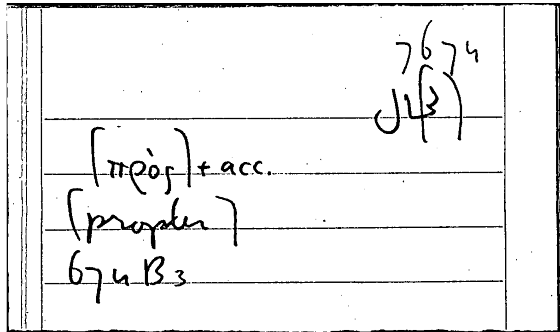 7674
[πρὸς] + acc.
[propter]
674 B3